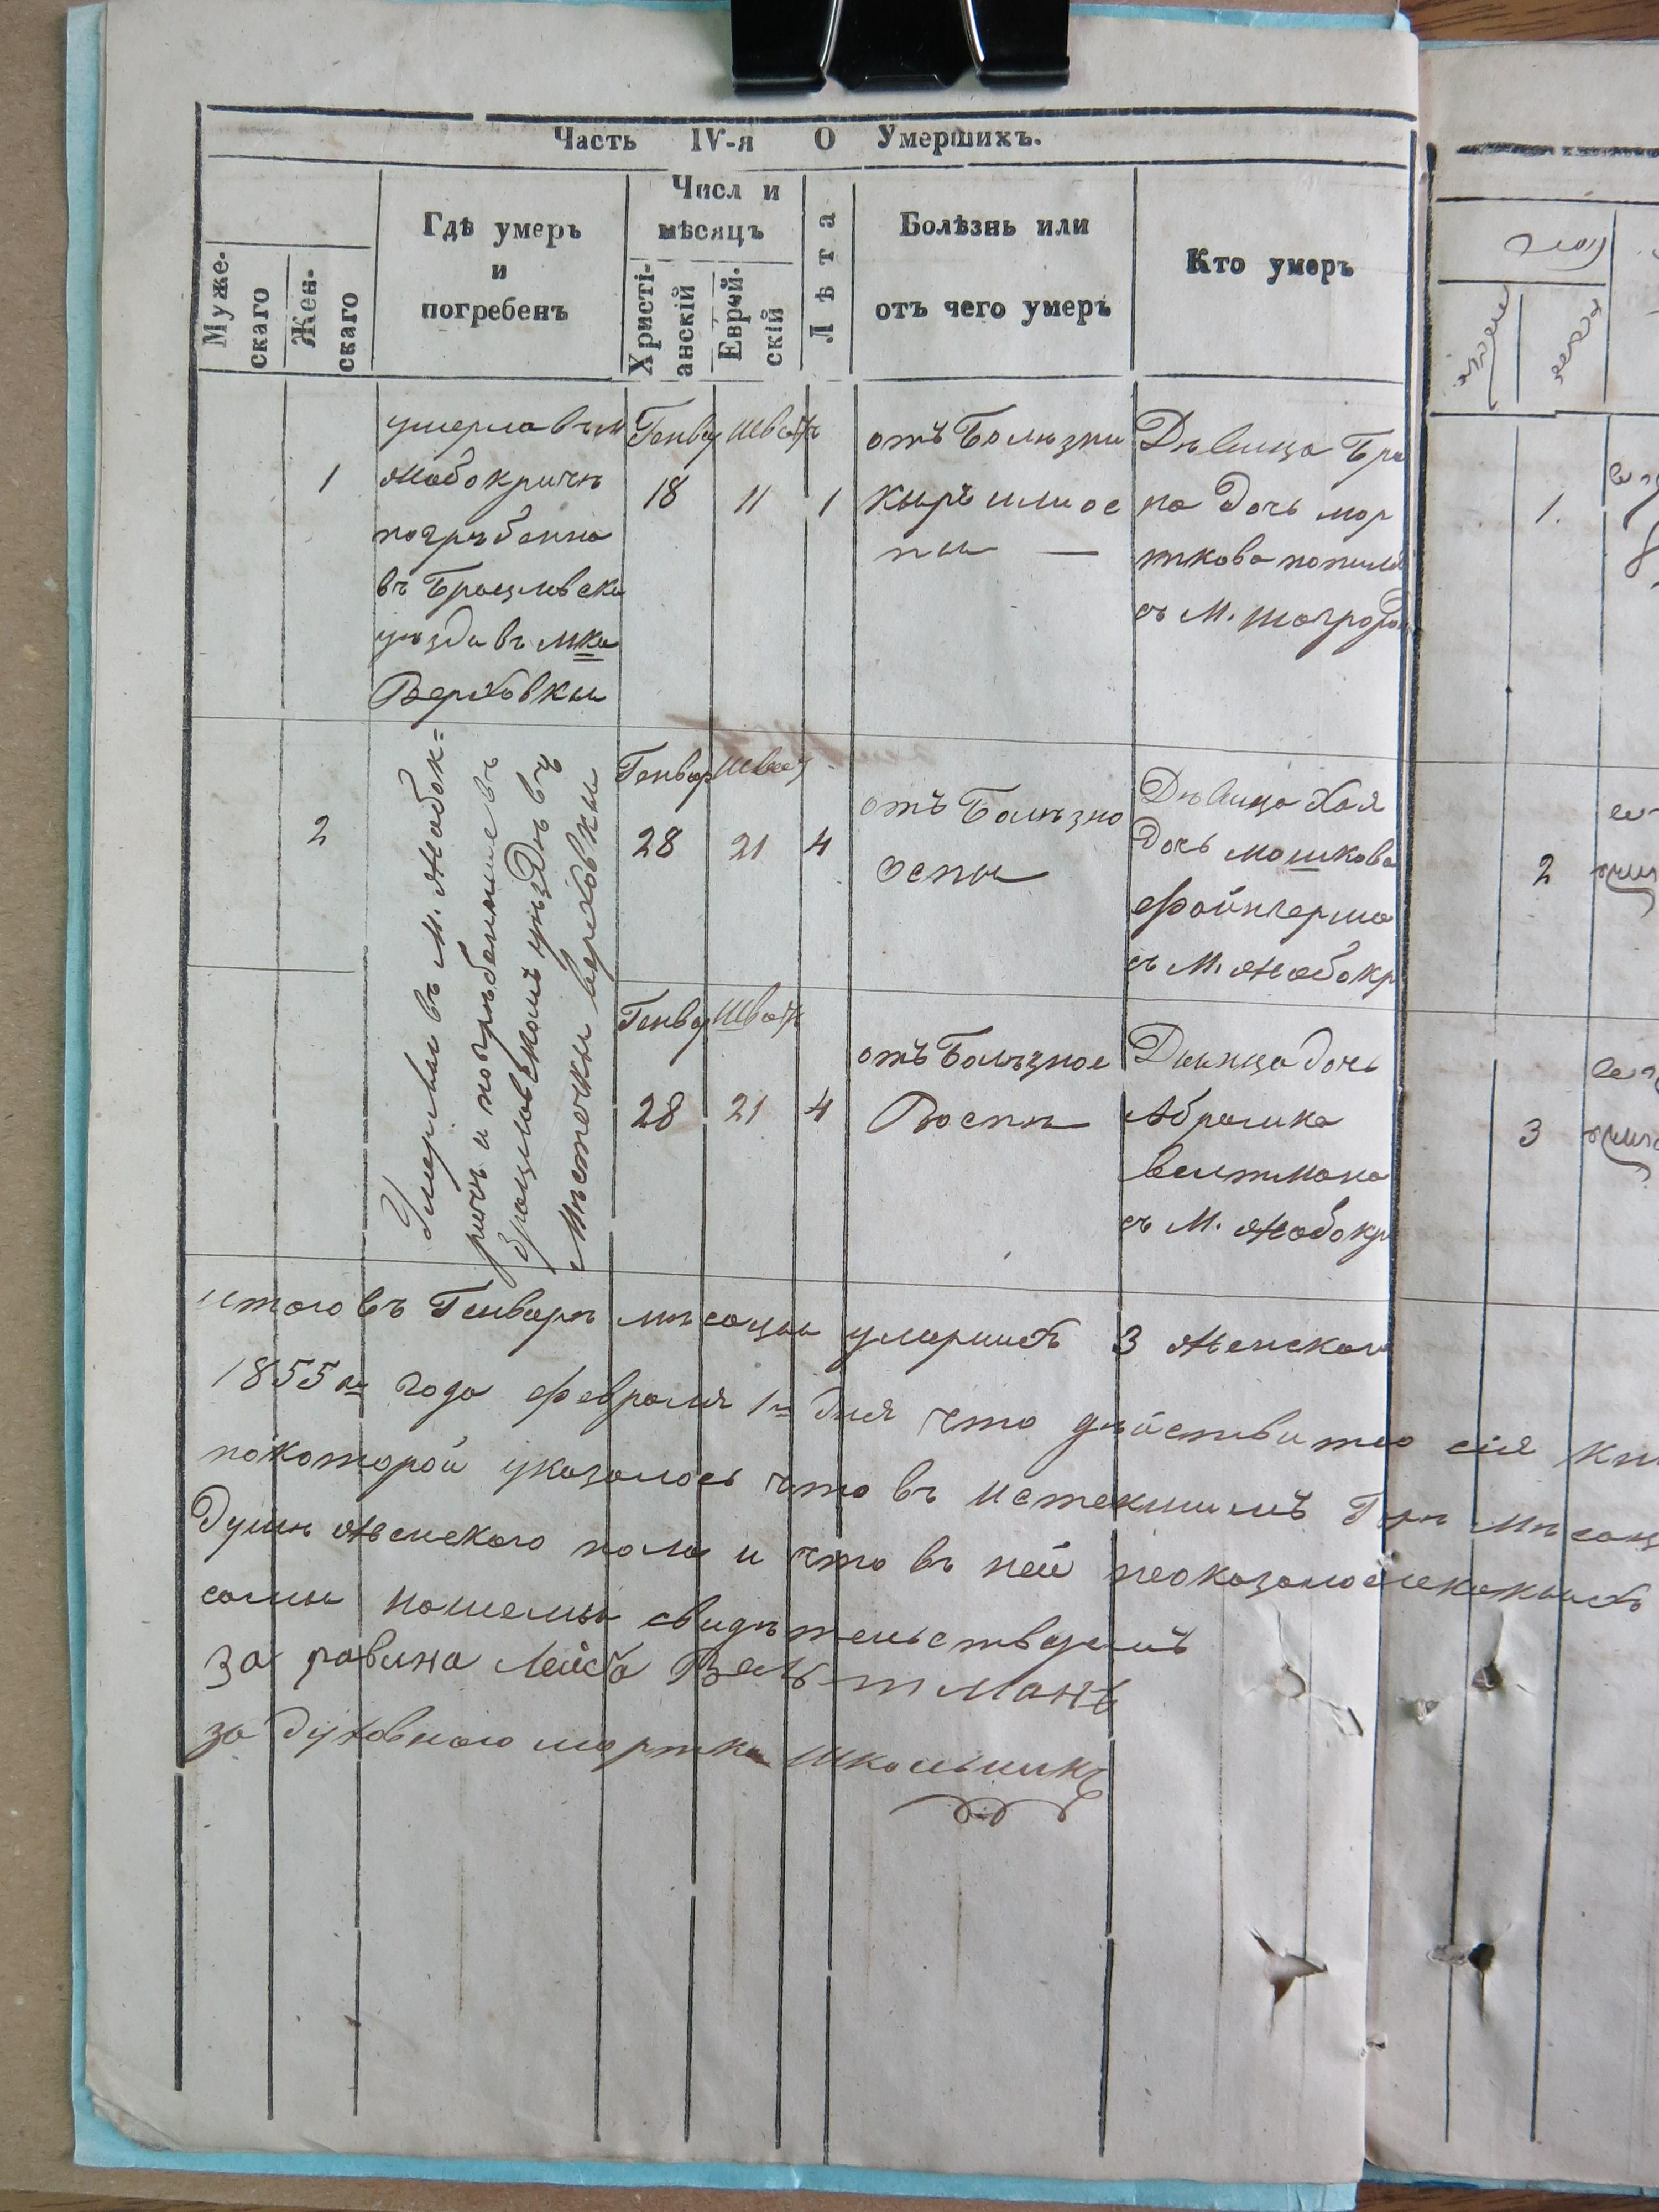 Часть IV-я О Умершихъ.
Муже-
скаго
Жен-
скаго
Гдѣ умеръ
и
погребенъ
Числ и
мѣсяцъ
Христі-
анскій
Еврей-
скій
Лѣта
Болѣзнь или
отъ чего умеръ
Кто умеръ
1
умерла въ м
Жабокричѣ
погрѣбенна
въ Брацлавска
уѣзда въ мка
Верховки
Генвар
18
Шватъ
11
1
отъ Болѣзни
кыръ или ос
пы —
Дѣвица Бра
на дочь мор
ткова
съ М.
2
Умерлы въ М. Жабок=
ричѣ и погрѣбенные въ
Брацловскомъ уѣздѣ въ
Мѣстечки верховки
Генвар
28
Шват
21
4
отъ Болѣзно
оспы
Дѣвица Хая
дочь мошкова
Файнгерша
съ М. Жабокр
Генвар
28
Шватъ
21
4
отъ Болѣзное
Воспѣ
Дѣвица дочь
Абрамка
велтмана
съ М. Жабокр
итого въ Генварѣ мѣсяцы умершихъ 3 женског
1855го года февраля 1го дня что дѣйствитло сія кни
покоторой указалось что въ истекшимъ Генрѣ мѣсяц
душъ женского пола и что въ ней неоказалось некакихъ
самы нашемы свидѣтельствуемъ
за равина Лейба Вельтманъ
за духовного мортко Школьникъ
1.
2
3